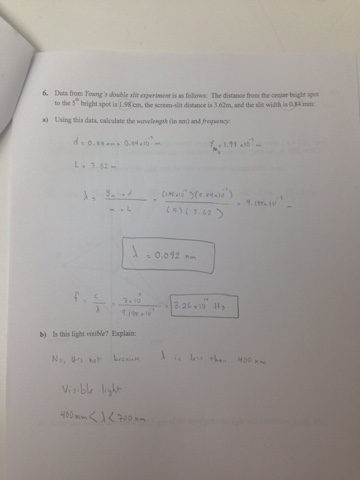 6. Data from Young's double slit experiment is as follows: The distance from the center bright spot
to the 5th bright spot is 1.98 cm, the screen-slit distance is 3.62m, and the slit width is 0.84 mm:
a) Using this data, calculate the wavelength (in nm) and frequency.
d = 0.84 mm
L = 3.62 m
λ =
(3.62)
λ = 0.092 nm
f = c / λ = = 3.26 × 10 Hz
b) Is this light visible? Explain:
No, it's not because λ is less than 400 nm
Visible light
400nm < λ < 700nm